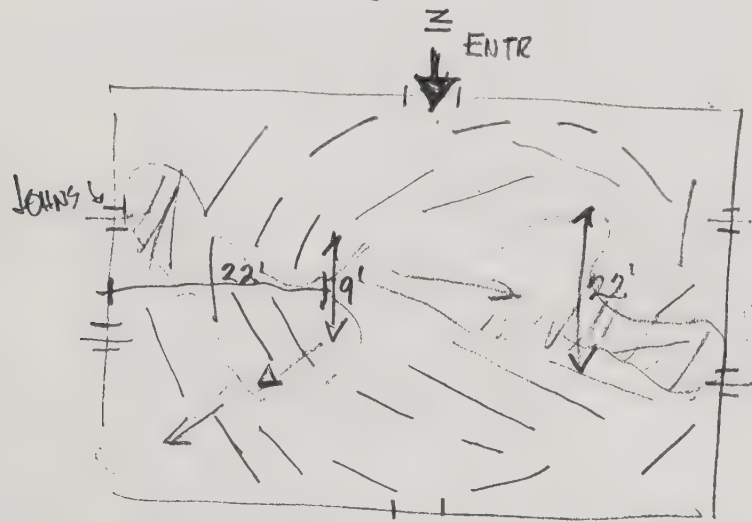 IN
ENTR
JOHNS
22'
9'
22'